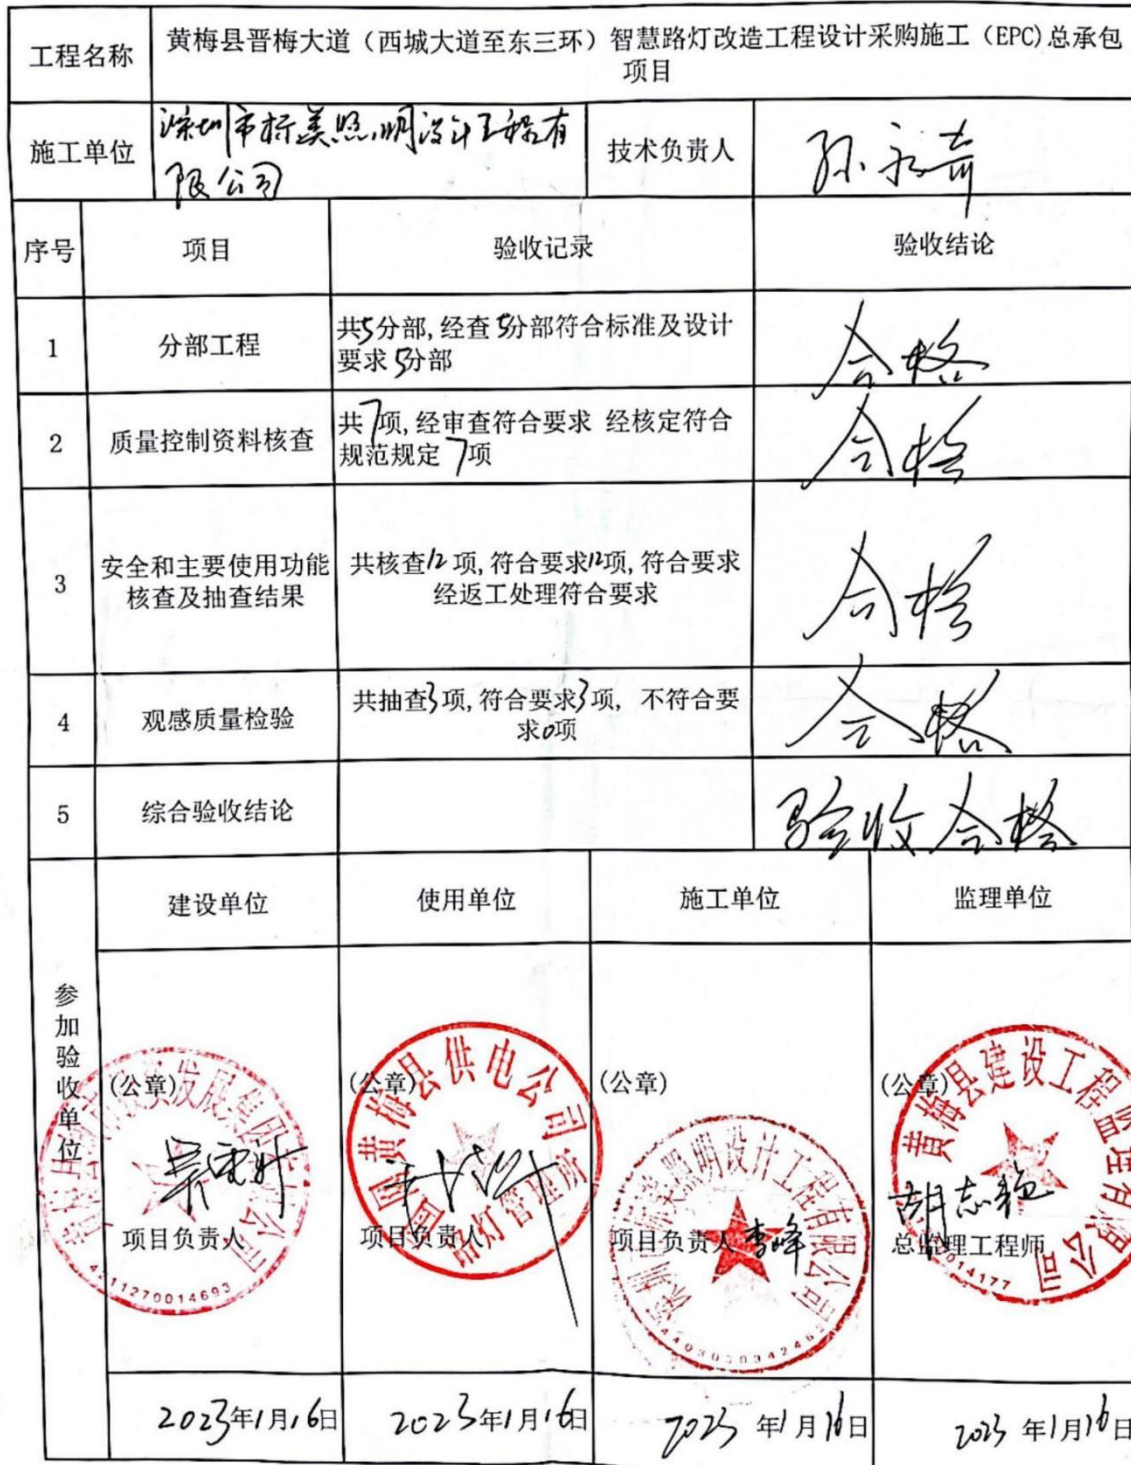 工程名称
黄梅县晋梅大道（西城大道至东三环）智慧路灯改造工程设计采购施工（EPC)总承包
项目
施工单位
深圳市标美照明设计工程有
限公司
技术负责人
孙永奇
序号
项目
验收记录
验收结论
1
分部工程
共5分部,经查5分部符合标准及设计
要求5分部
合格
2
质量控制资料核查
共7项,经审查符合要求 经核定符合
规范规定7项
合格
3
安全和主要使用功能
核查及抽查结果
共核查12项,符合要求12项,符合要求
经返工处理符合要求
合格
4
观感质量检验
共抽查3项,符合要求3项, 不符合要
求0项
合格
5
综合验收结论
验收合格
参加验收单位
建设单位
使用单位
施工单位
监理单位
(公章)
(公章)
(公章)
(公章)
黄梅县供电公司
路灯管理所
深圳市标美照明设计工程有限公司
黄梅县建设工程监理有限公司
项目负责人
项目负责人
项目负责人 李峰
胡志艳
总监理工程师
4211270014693
2023年1月16日
2023年1月16日
2023年1月16日
2023年1月16日